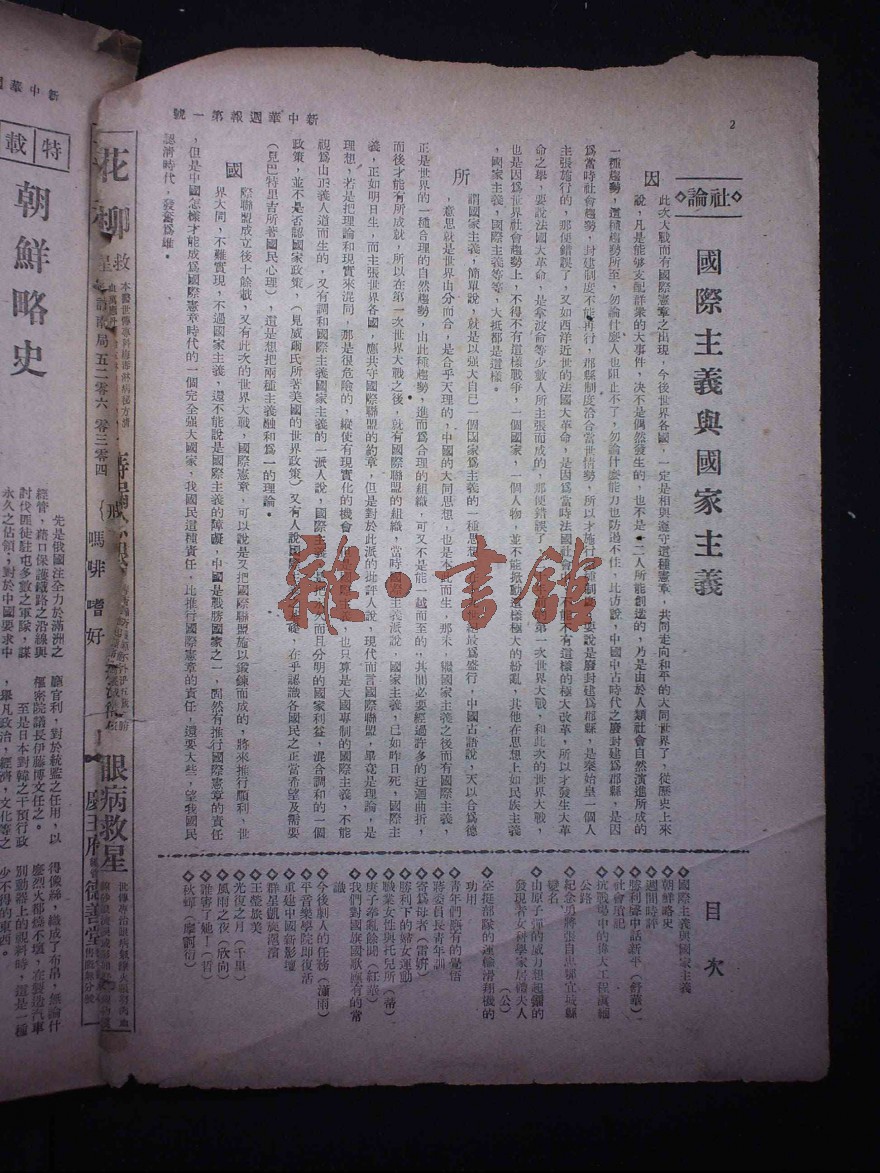 2
新中華週報第一號
◇社論◇
國際主義與國家主義
因此次大戰而有國際憲章之出現,今後世界各國,一定是相與遵守這種憲章,共同走向和平的大同世界了,從歷史上來
說,凡是能够支配群衆的大事件,決不是偶然發生的,也不是一二人所能創造的,乃是由於人類社會自然演進所成的
一種趨勢,這種趨勢所至,勿論什麽人也阻止不了,勿論什麽能力也防遏不住,比仿說,中國中古時代之廢封建爲郡縣,是因
爲當時社會趨勢,封建制度不能再行,郡縣制度洽合當世情勢,所以才施行
要說是廢封建爲郡縣,是秦始皇一個人
主張施行的,那便錯誤了,又如西洋近世的法國大革命,是因爲當時法國社會
有這樣的極大改革,所以才發生大革
命之舉,要說法國大革命,是拿波侖等少數人所主張而成的,那便錯誤了
的第一次世界大戰,和此次的世界大戰,
也是因爲世界社會趨勢上,不得不有這樣戰爭,一個國家,一個人物,並不能掀動這樣極大的紛亂,其他在思想上如民族主義
,國家主義,國際主義等等,大抵都是這樣。
所謂國家主義,簡單說,就是以強大自己一個國家爲主義的一種思想
成爲盛行,中國古語說,天以合爲德
,意思就是世界由分而合,是合乎天理的,中國的大同思想,也是本此而生的,那末,繼國家主義之後而有國際主義,
正是世界的一種合理的自然趨勢,由此種趨勢,進而爲合理的組織,可又不是能一越而至的,其間必要經過許多的迂迴曲折,
而後才能有所成就,所以在第一次世界大戰之後,就有國際聯盟的組織,當時國際主義派說,國家主義,已如昨日死,國際主
義,正如明日生,而主張世界各國,應共守國際聯盟的約章,但是對於此派的批評人說,現代而言國際聯盟,畢竟是理論,是
理想,若是把理論和現實來混同,那是很危險的,縱使有現實化的機會
也只算是大國專制的國際主義,不能
視爲由正義人道而生的,又有調和國際主義國家主義的一派人說,國際主義
而且分明的國家利益,混合調和的一個
政策,並不是否認國家政策,(見威爾氏所著美國的世界政策)又有人說國
在乎認識各國民之正當希望及需要
(見巴特里吉所著國民心理),這是想把兩種主義融和爲一的理論。
國際聯盟成立後十餘載,又有此次的世界大戰,國際憲章,可以說是又把國際聯盟施以鍛鍊而成的,將來推行順利,世
界大同,不難實現,不過國家主義,還不能說是國際主義的障礙,中國是戰勝國家之一,固然有推行國際憲章的責任
,但是中國怎樣才能成爲國際憲章時代的一個完全強大國家,我國民這種責任,比推行國際憲章的責任,還要大些,望我國民
認清時代,發奮爲雄。
目次
◇國際主義與國家主義
◇朝鮮略史
◇週間時評
◇勝利聲中話新平(舒華)
◇社會瑣記
◇抗戰學中的偉大工程滇緬
公路
◇紀念勇將張自忠鄉宜城縣
變名
◇由原子彈的威力想起鐳的
發現者女科學家居禮夫人
(公)
◇空挺部隊的運輸滑翔機的
功用
◇青年們應有的覺悟
◇蔣委員長青年訓
◇寄爲母者(雷妍)
◇勝利下的婦女運動
◇職業女性與托兒所(蒂)
◇庚子拳亂餘聞(紅葉)
◇我們對國旗國歌應有的常
識
◇今後劇人的任務(瀟雨)
◇平音樂學院即復活
◇重建中國新影壇
◇群星凱旋滙演
◇王瑩旅美
◇光復之月(千里)
◇風雨之夜(欣向)
◇誰害了她!(哲)
◇秋蟬(廖詞衍)
花柳救星
五二零六 零三零四
戒 嗎啡嗜好
眼病救星
德善堂
新中華
特載
朝鮮略史
先是俄國注全力於滿洲之
經營,藉口保護鐵路之沿線與
討伐匪徒駐屯多數之軍隊,謀
永久之佔領;對於中國要求中
廳官利,對於統監之任用,以
樞密院議長伊藤博文任之。
至是日本對韓之干預行政
,舉凡政治,經濟,文化等之
得像絲,織成了布帛,無論什
麼烈火都燒不壞,在製造汽車
別動器上的襯料時,這是一種
少不得的東西。
雜·書館